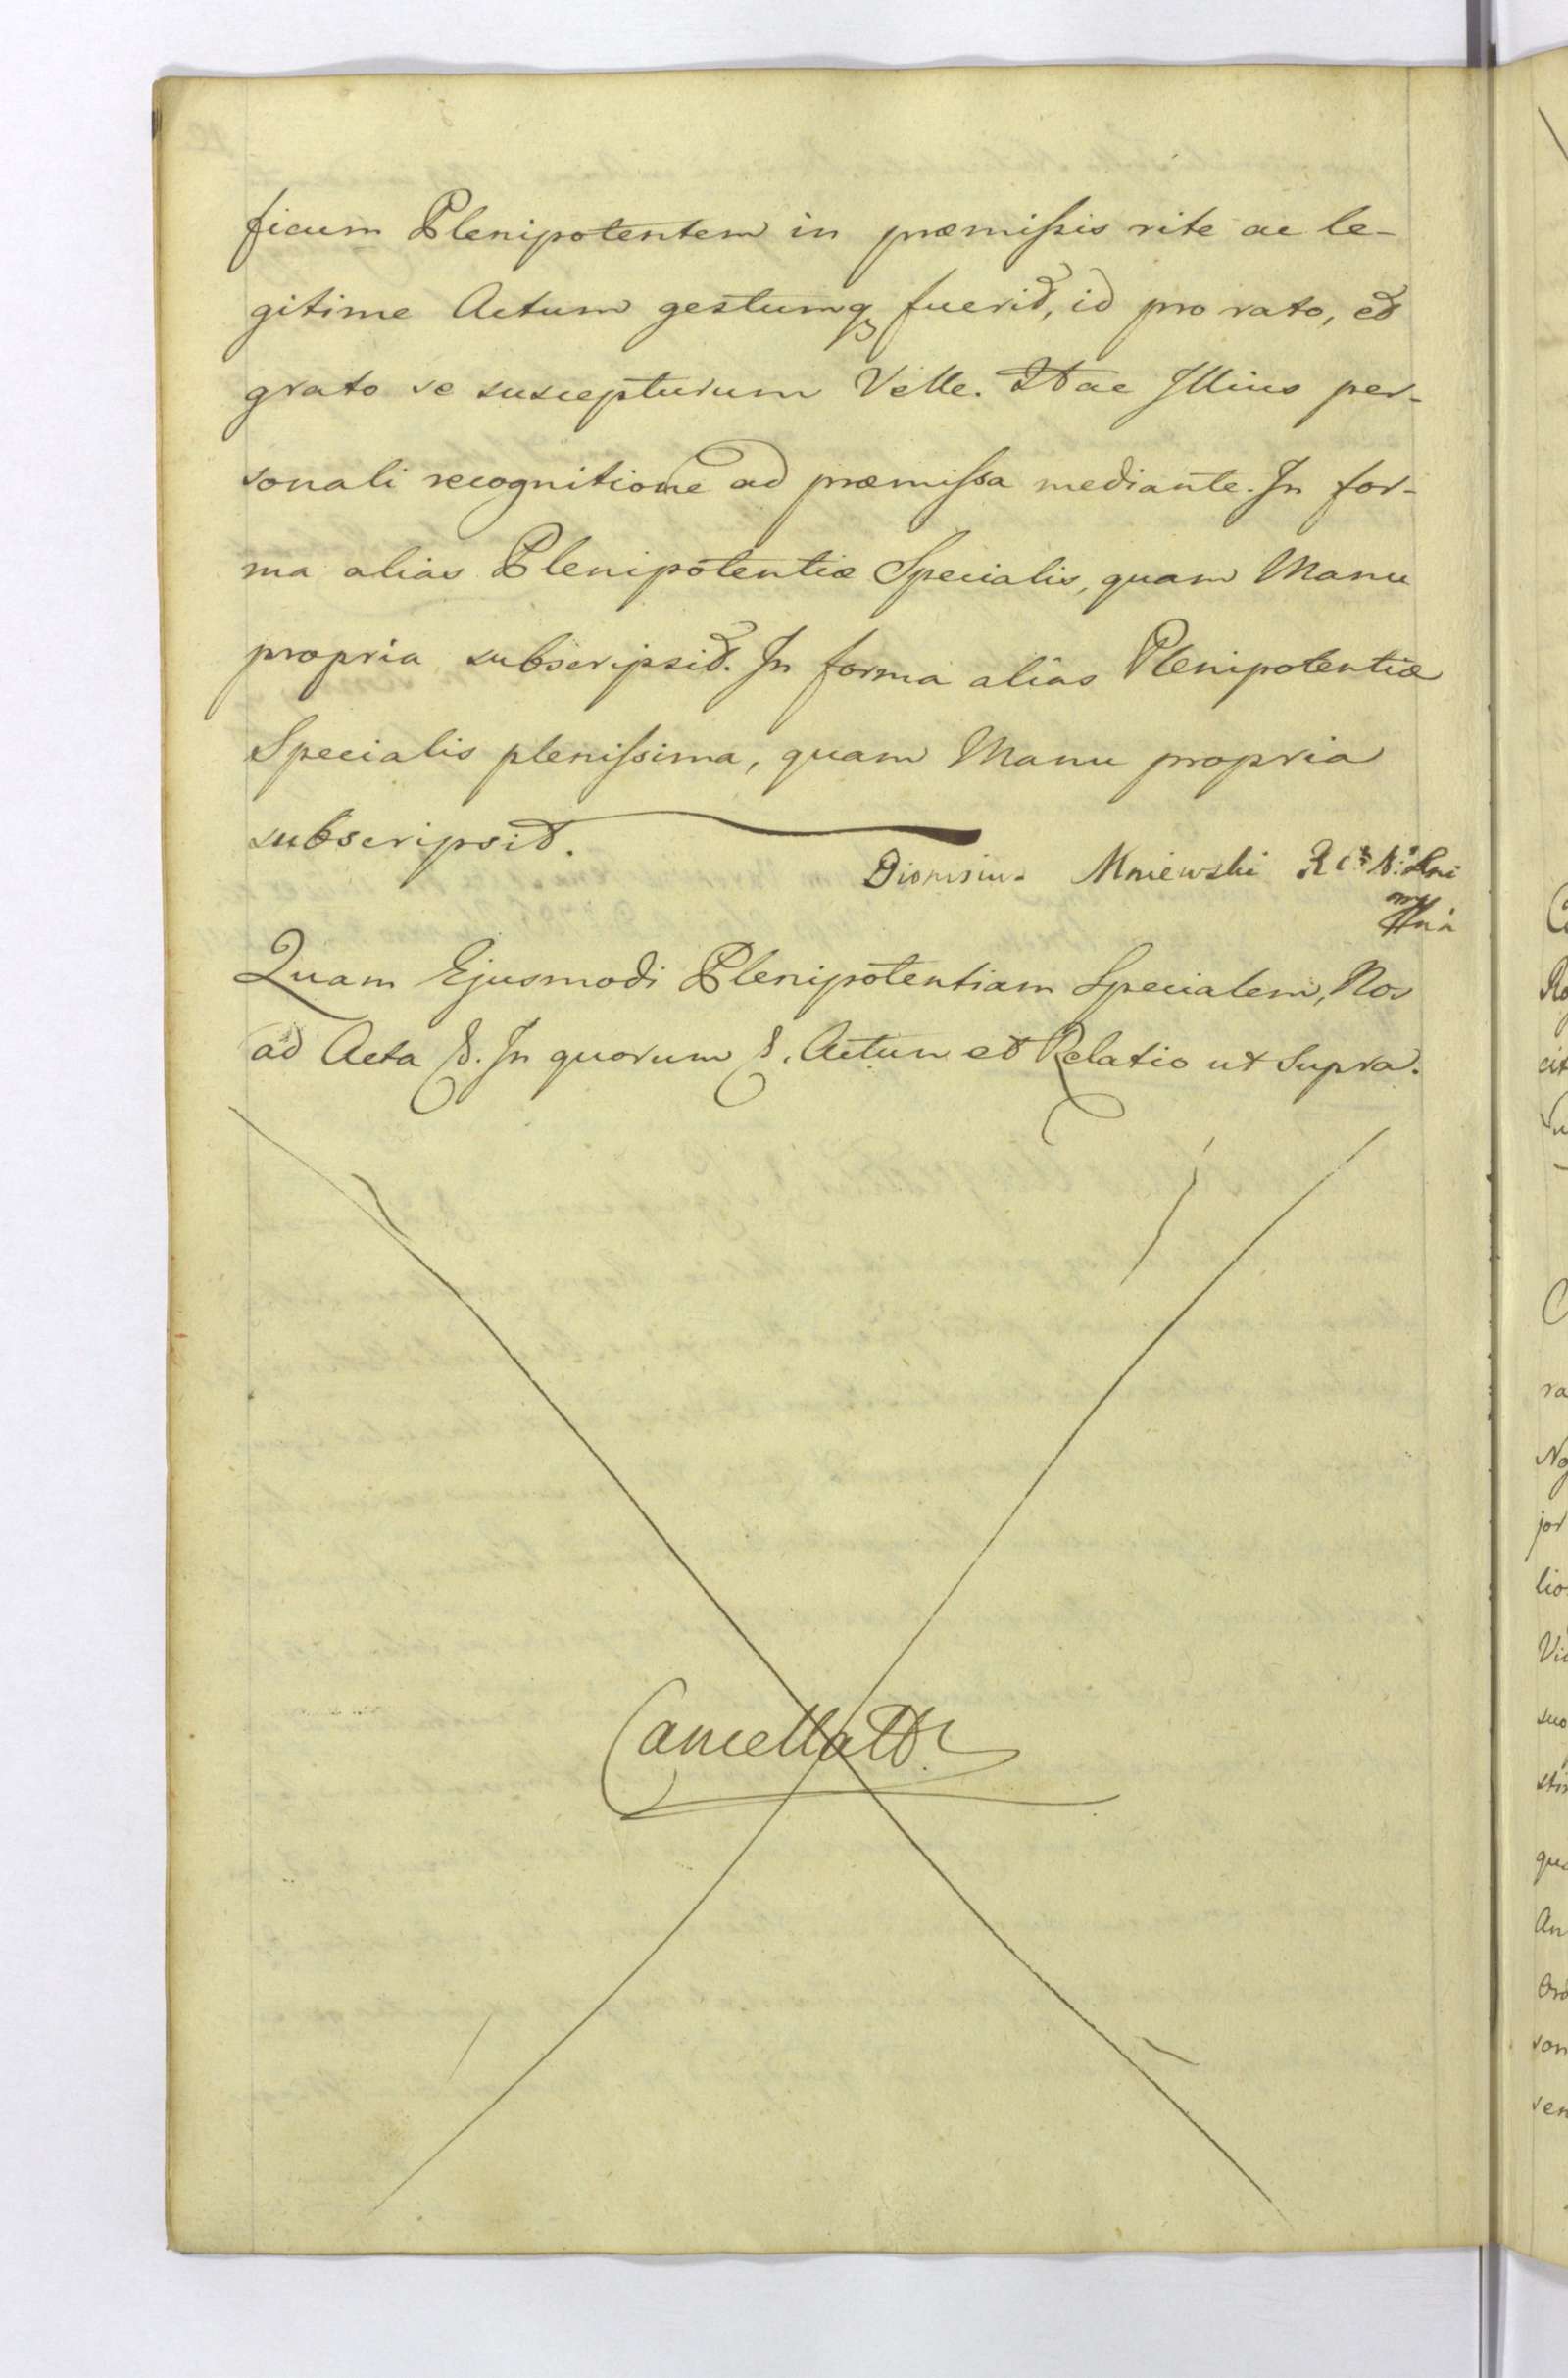 ficum Plenipotentem in præmiſsis rite ac le-
gitime Actum gestumq fuerit, id pro rato, et
grato se suscepturum Velle. Hac Illius per-
sonali recognitione ad præmiſsa mediante. In for-
ma alias Plenipotentiæ Specialis, quam Manu
propria subscripsit. In forma alias Plenipotentiæ
Specialis pleniſsima, quam Manu propria
subscripsit.
Dionisius Mniewski
Quam Ejusmodi Plenipotentiam Specialem, Nos
ad Acta &. In quorum &. Actum et Relatio ut Supra.